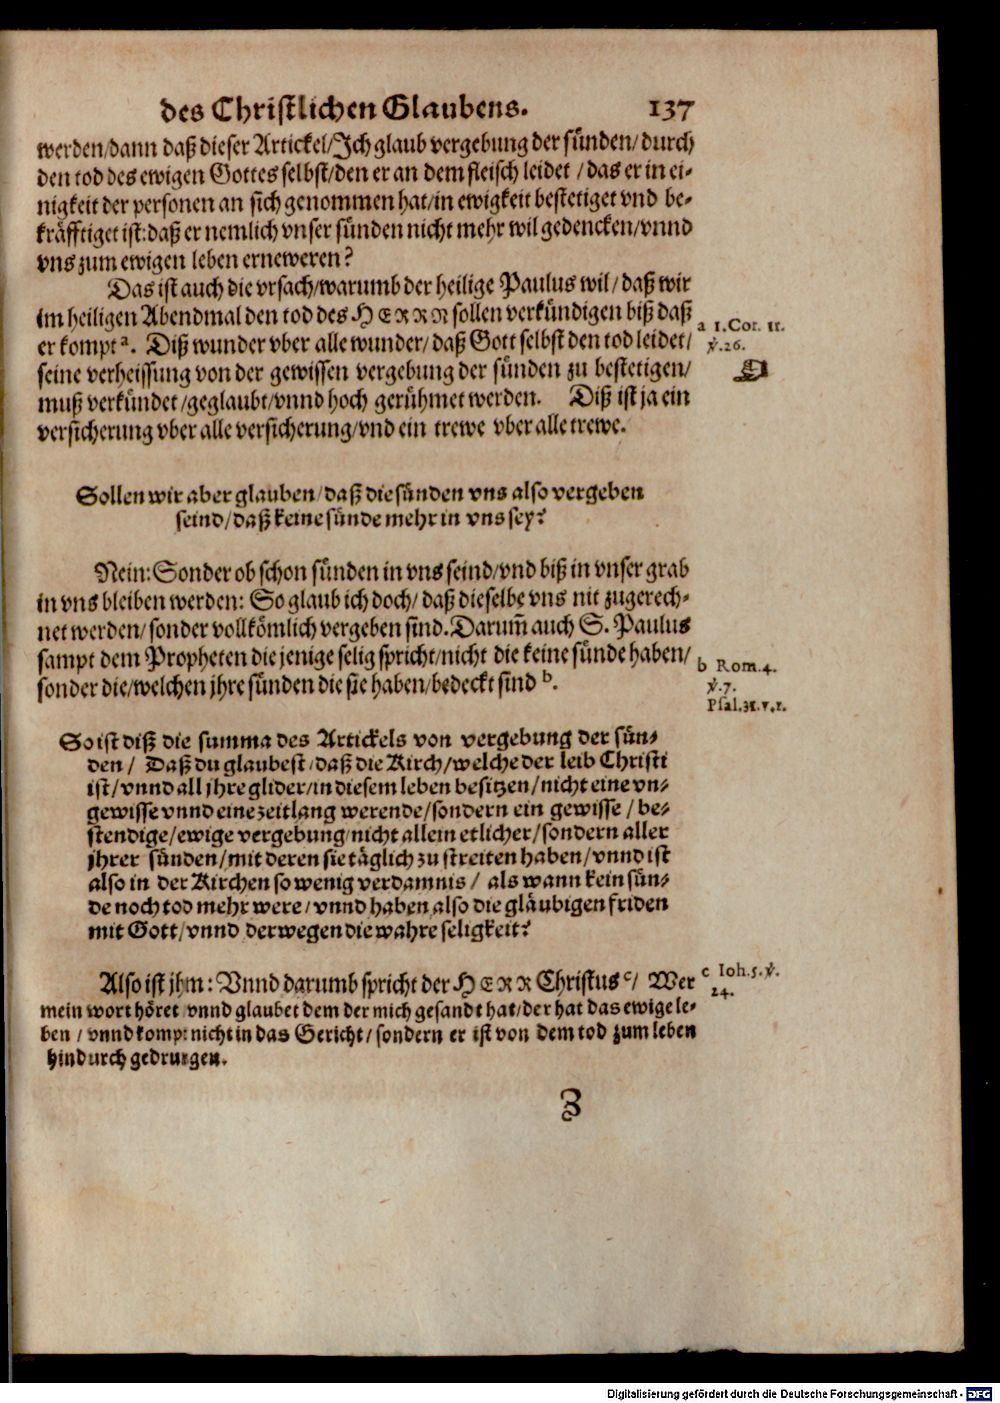 des Christlichen Glaubens. 137
werden/dann daß dieser Artickel/Ich glaub vergebung der sünden/durch
den tod des ewigen Gottes selbst/den er an dem fleisch leidet/das er in ei-
nigkeit der personen an sich genommen hat/in ewigkeit bestetiget vnd be-
kräfftiget ist:daß er nemlich vnser sünden nicht mehr wil gedencken/vnnd
vns zum ewigen leben erneweren?
Das ist auch die vrsach/warumb der heilige Paulus wil/daß wir
im heiligen Abendmal den tod des HERRN sollen verkündigen biß daß
er kompt a. Diß wunder vber alle wunder/daß Gott selbst den tod leidet/
a 1.Cor. 11.
℣.26.
seine verheissung von der gewissen vergebung der sünden zu bestetigen/
muß verkündet/geglaubt/vnnd hoch gerühmet werden. Diß ist ja ein
versicherung vber alle versicherung/vnd ein trewe vber alle trewe.
Sollen wir aber glauben/daß die sünden vns also vergeben
seind/daß keine sünde mehr in vns sey?
Nein:Sonder ob schon sünden in vns seind/vnd biß in vnser grab
in vns bleiben werden: So glaub ich doch/daß dieselbe vns nit zugerech-
net werden/sonder vollkömlich vergeben sind. Darum̄ auch S. Paulus
sampt dem Propheten die jenige selig spricht/nicht die keine sünde haben/
sonder die/welchen jhre sünden die sie haben/bedeckt sind b.
b Rom.4.
℣.7.
Psal.32.v.1.
So ist diß die summa des Artickels von vergebung der sün-
den/ Daß du glaubest/daß die Kirch/welche der leib Christi
ist/vnnd all jhre glider/in diesem leben besitzen/nicht eine vn-
gewisse vnnd eine zeitlang werende/sondern ein gewisse/be-
stendige/ewige vergebung/nicht allein etlicher/sondern aller
jhrer sünden/mit deren sie täglich zu streiten haben/vnnd ist
also in der Kirchen so wenig verdamnis/ als wann kein sün-
de noch tod mehr were/vnnd haben also die gläubigen friden
mit Gott/vnnd derwegen die wahre seligkeit?
Also ist jhm: Vnnd darumb spricht der HERR Christus c/ Wer
c Ioh.5.℣.
24.
mein wort höret vnnd glaubet dem der mich gesandt hat/der hat das ewige le-
ben/vnnd kompt nicht in das Gericht/sondern er ist von dem tod zum leben
hindurch gedrungen.
Z
Digitalisierung gefördert durch die Deutsche Forschungsgemeinschaft - DFG